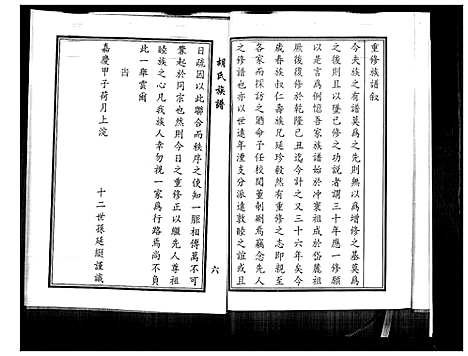 重修族譜敘
今夫族之有譜莫為之先則無以為增修之基莫為
之後則且以墜已修之功説者謂三十年應一修願
以是言為例憶吾家族譜始於漢襄祖成於岱麓祖
厥後復修於乾隆己丑迄今計之又三十六年矣今
歲春族叔仁壽族兄延珍毅然有重修之志即親至
各家而採訪之猶命子任校閱董剞劂焉竊念先人
之修譜也亦以世遠年湮支分派遠敦睦之誼或且
胡氏族譜
六
日疏因以此聯合而秩序之使知一脈相傳萬不可
棄起於同宗也然則今日之重修正以繼先人尊祖
睦族之心凡我族人幸勿視一家為行路焉尚不負
此一舉云爾
旹
嘉慶甲子荷月上浣
十二世孫延𬘬謹識